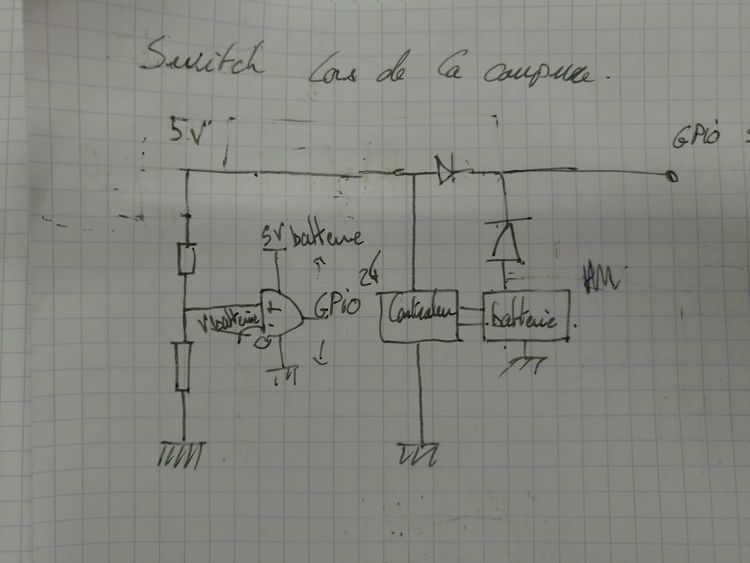 Switch lors de la coupure.
5V
GPiO
5V batterie
24
V batterie
+
-
GPiO
Controleur
batterie